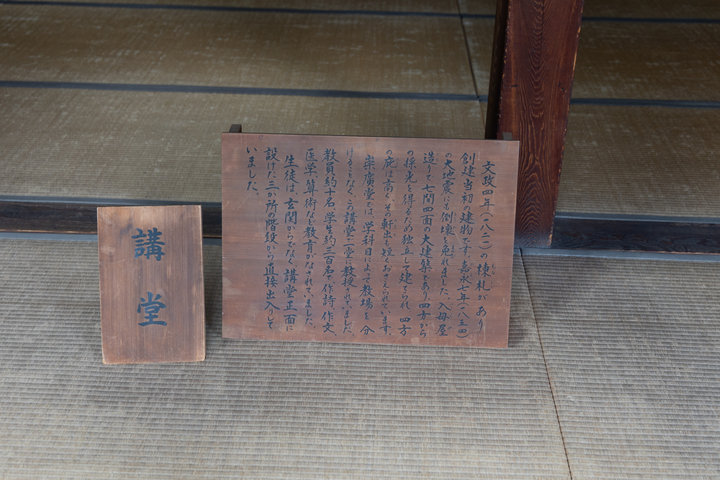 文政四年(一八二一)の棟札があり
創建当初の建物です。嘉永七年(一八五四)
の大地震にも倒壊を免れました。入母屋
造りで七間四面の大建築であり四方から
の採光を得るため独立して建てられ、四方
の庇は高く、その軒出も短くおさえられています。
崇廣堂では、学科目によって教場を分
けることなく、この講堂一堂に教授されていました。
教員約十名 学生約三百名で作詩、作文、
医学、算術など教育がなされていました。
生徒は、玄関からでなく、講堂正面に
設けた三か所の階段から直接出入りして
いました。
講堂